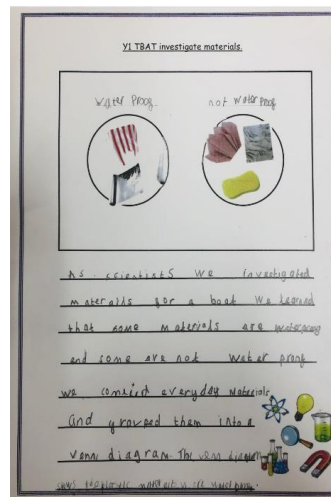 Y1 TBAT investigate materials.
water Proof. not water proof
As scientists we investigated
materails for a boat we learned
that some materials are waterproof
and some are not water proof
we everyday materials
and grouped them into a
venn diagram. The venn diagram
shows